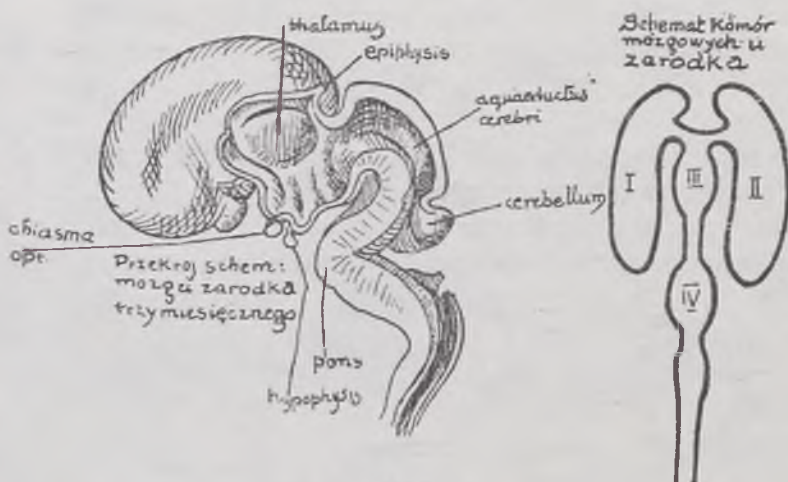 thalamus
epiphysis
aquaeductus
cerebri
cerebellum
chiasma
opt.
Przekrój schem:
mózgu zarodka
trzymiesięcznego
pons
hypophysis
Schemat Kómór
mózgowych u
zarodka
I
III
II
IV